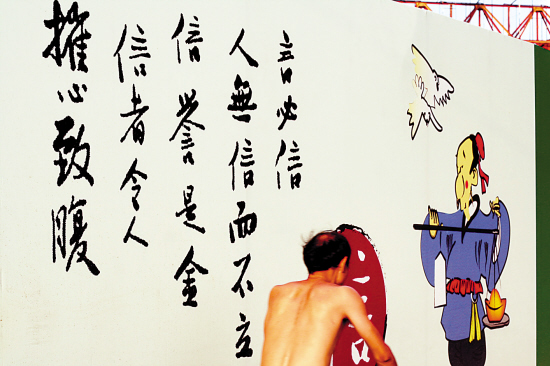 言必信
人無信而不立
信譽是金
信者令人
摧心致腹